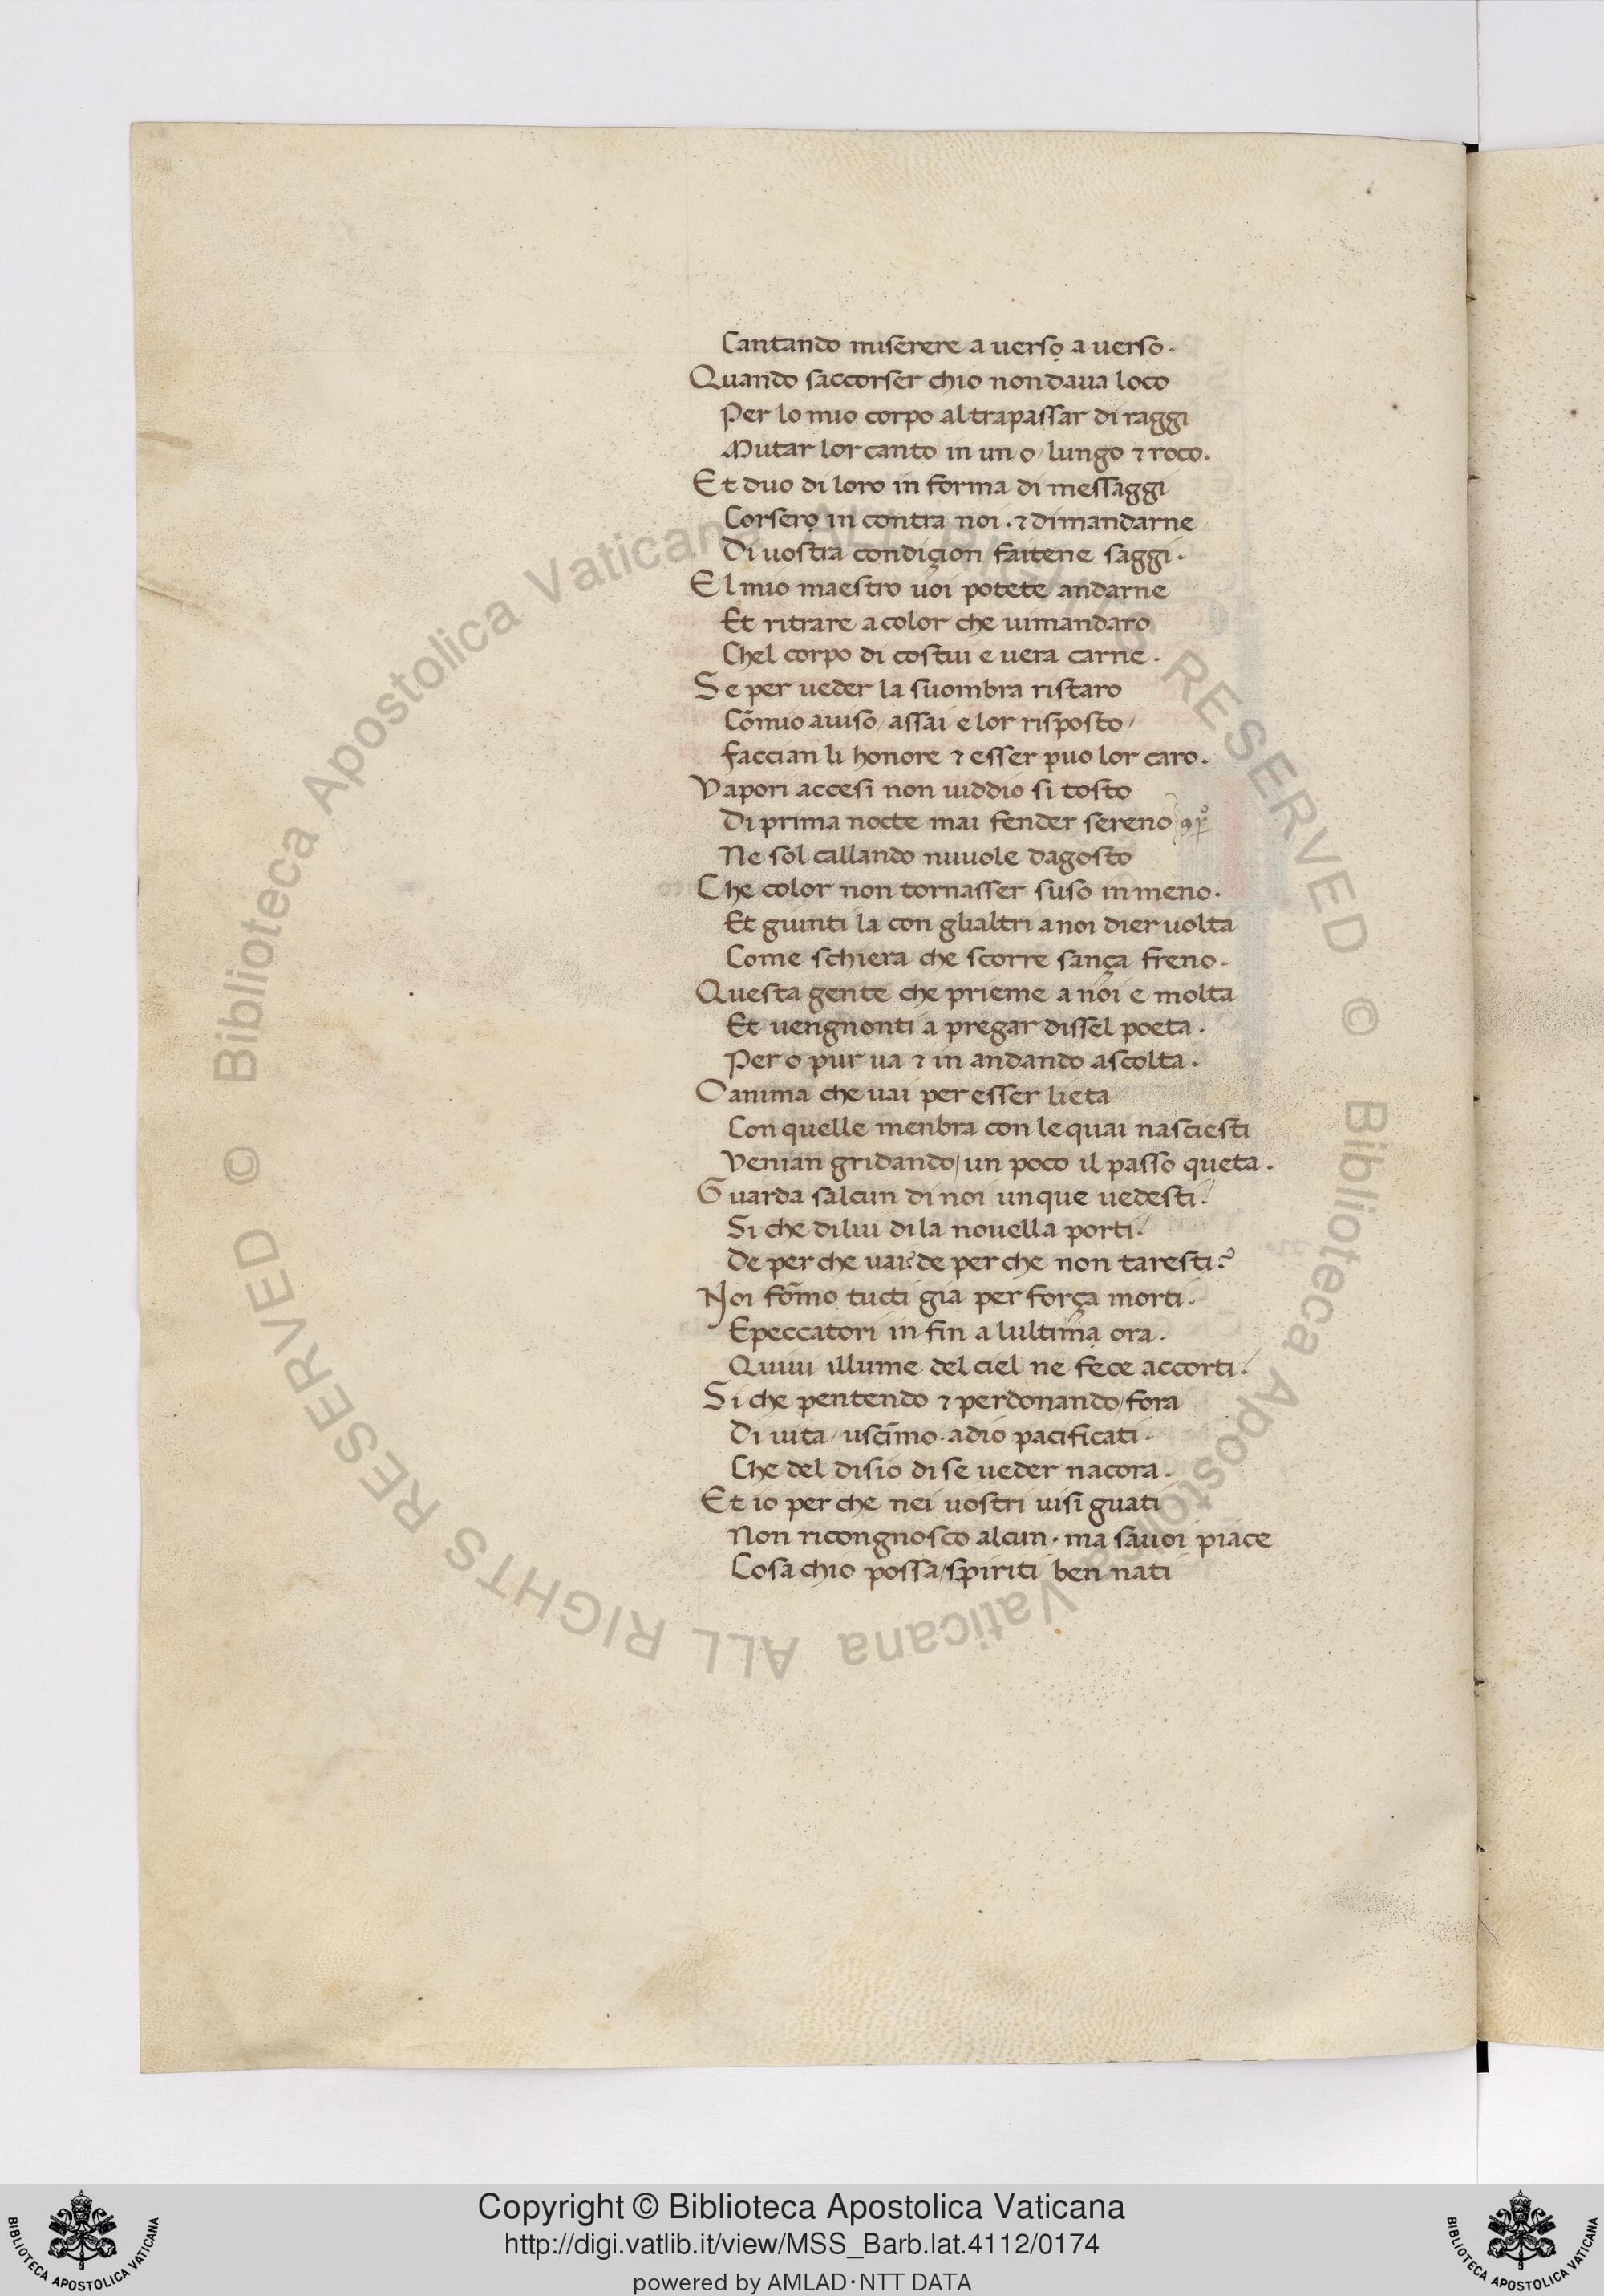 Cantando miserere a uersọ a uerso.
Quando saccorser chio non daua loco
Per lo mio corpo al trapassar di raggi
Mutar lor canto in un o / lungo ⁊ roco.
Et duo di loro in forma di messaggi
Corserọ in contra noi . ⁊ dimandarne
Di uostra condiçion faitene saggi.
El mio maestro uoi potete andarne
Et ritrare a color che uimandaro
Chel corpo di costui e uera carne.
Se per ueder la suombra ristaro
Cõmio auiso / assai e lor risposto /
faccian li honore ⁊ esser puo lor caro.
Vapori accesi non uiddio si tosto
Di prima nocte mai fender sereno
Ne sol callando nuuole dagosto
Che color non tornasser suso in meno.
Et giunti la con glialtri a noi dier uolta
Come schiera che scorre sança freno.
Questa gente che prieme a noi e molta
Et uengnonti a pregar dissel poeta.
Per o pur ua ⁊ in andando ascolta.
O anima che uai per esser lieta
Con quelle menbra con lequai nasciesti
Venian gridando / un poco il passo queta.
Guarda salcun di noi unque uedesti.
Si che dilui dila nouella porti.
De per che uai? de per che non taresti?
Noi fõmo tucti gia per força morti.
Epeccatori in fin a lultima ora.
Quiui illume del ciel ne fece accorti.
Si che pentendo ⁊ perdonando / fora
Di uita / uscĩmo . adio pacificati.
Che del disio di se ueder nacora.
Et io per che nei uostri uisi guati
Non ricongnosco alcun . ma sauoi piace
Cosa chio possa / spiriti ben nati
© Biblioteca Apostolica Vaticana ALL RIGHTS RESERVED © Biblioteca Apostolica Vaticana ALL RIGHTS RESERVED
Copyright © Biblioteca Apostolica Vaticana
http://digi.vatlib.it/view/MSS_Barb.lat.4112/0174
powered by AMLAD·NTT DATA
BIBLIOTECA APOSTOLICA VATICANA
BIBLIOTECA APOSTOLICA VATICANA